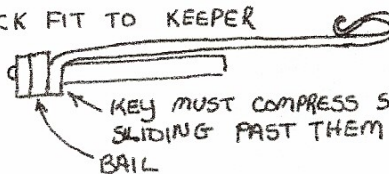 CK FIT TO KEEPER
KEY MUST COMPRESS S
SLIDING PAST THEM
BAIL